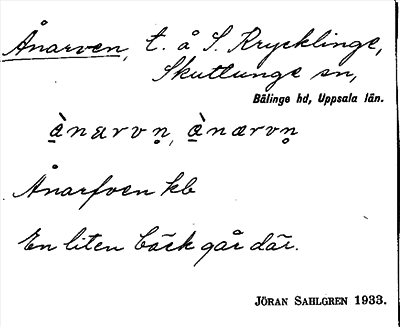 Ånarven, t. å S. Krycklinge,
Skuttunge sn,
Bälinge hd, Uppsala län.
ànarvn̥, ànærvn̥
Ånarfven kb
En liten bäck går där.
JÖRAN SAHLGREN 1933.